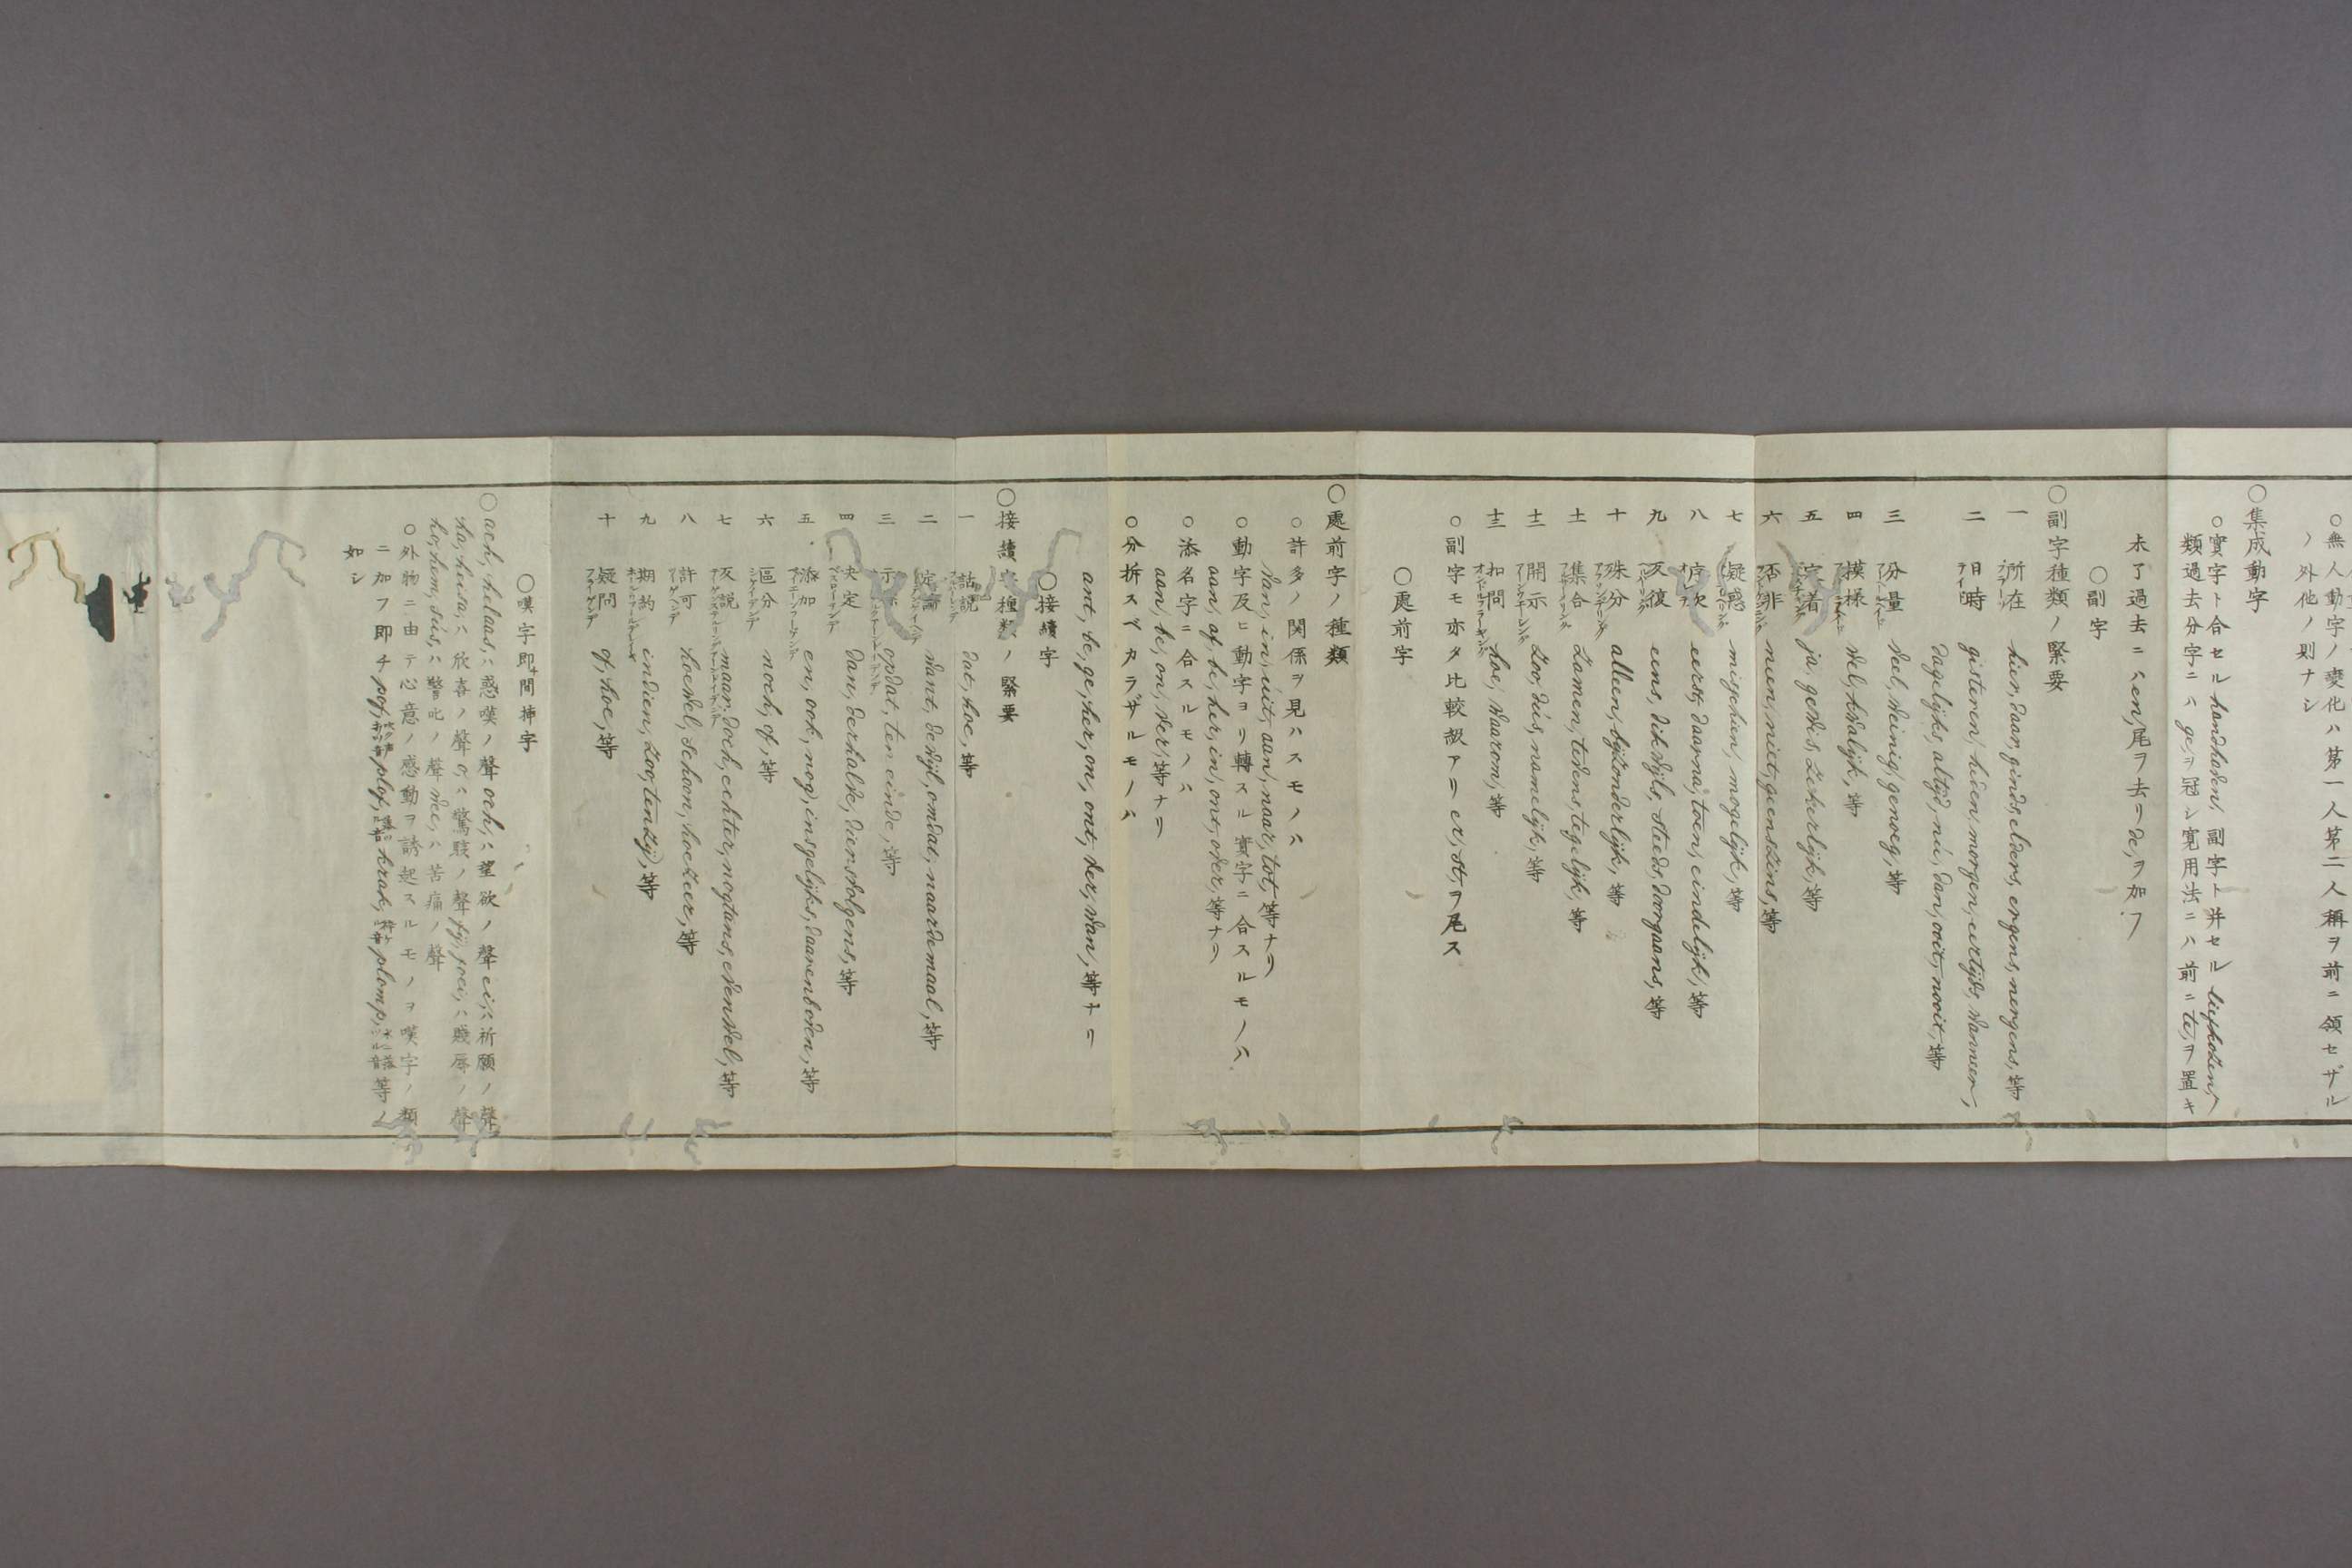 ○無人動字ノ変化ハ第一人第二人稱ヲ前ニ領セザル
ノ外他ノ則ナシ
○集成動字
○實字ト合セル handhaven, 副字ト并セル liefkozen,ノ
類過去分字ニハ ge,ヲ冠シ寛用法ニハ前ニ te,ヲ置キ
未了過去ニハ en,尾ヲ去リ de,ヲ加フ
○副字
○副字種類ノ緊要
一 所在 hier, daar, ginds, elders, ergens, nergens, 等
二 日時 gisteren, heden, morgen, eertijds, wanneer,
dagelijks, altijd, nú, dan, ooit, nooit, 等
三 分量 veel, weinig, genoeg, 等
四 摸様 wel, kwalijk, 等
五 定着 ja, gewis, zekerlijk, 等
六 否非 neen, niet, geenszins, 等
七 疑惑 misschien, mogelijk, 等
八 席次 eerst, daarna, toen, eindelijk, 等
九 反復 eens, dikwijls, steeds, doorgaans, 等
十 殊分 alleen, bijzonderlijk, 等
十一 集合 zamen, tevens, tegelijk, 等
十二 開示 zoo, dús, namelijk, 等
十三 扣問 hoe, waarom, 等
○副字モ亦タ比較級アリ er, st,ヲ尾ス
○處前字
○處前字ノ種類
○許多ノ関係ヲ見ハスモノハ
van, in, úit, aan, naar, tot, 等ナリ
○動字及ヒ動字ヨリ轉スル實字ニ合スルモノハ
aan, af, be, her, in, ont, over, 等ナリ
○添名字ニ合スルモノハ
aan, be, on, ver, 等ナリ
○分拆スベカラザルモノハ
ant, be, ge, her, on, ont, ver, wan, 等ナリ
○接續字
○接續字種類ノ緊要
一 話説 dat, hoe, 等
二 定論 want, dewijl, omdat, naardemaal, 等
三 opdat, ten einde, 等
四 决定 dan, derhalve, diensvolgens, 等
五 添加 en, ook, nog, insgelijks, daarenboven, 等
六 區分 noch, of, 等
七 反説 maar, doch, echter, nogtans, evenwel, 等
八 許可 hoewel, schoon, hoezeer, 等
九 期約 indien, zoo, tenzij, 等
十 疑問 of, hoe, 等
○嘆字即間挿字
○ach, helaas,ハ惑嘆ノ聲 och,ハ望欲ノ聲 ei,ハ祈願ノ聲
ha, heisa,ハ欣喜ノ聲 o,ハ驚駭ノ聲 fij, foei,ハ賤辱ノ聲
ho, hem, sús,ハ警叱ノ聲 wee,ハ苦痛ノ聲
○外物ニ由テ心意ノ感動ヲ誘起スルモノヲ嘆字ノ類
ニ加フ即チ pof, plof, krak, plomp, 等ノ
如シ